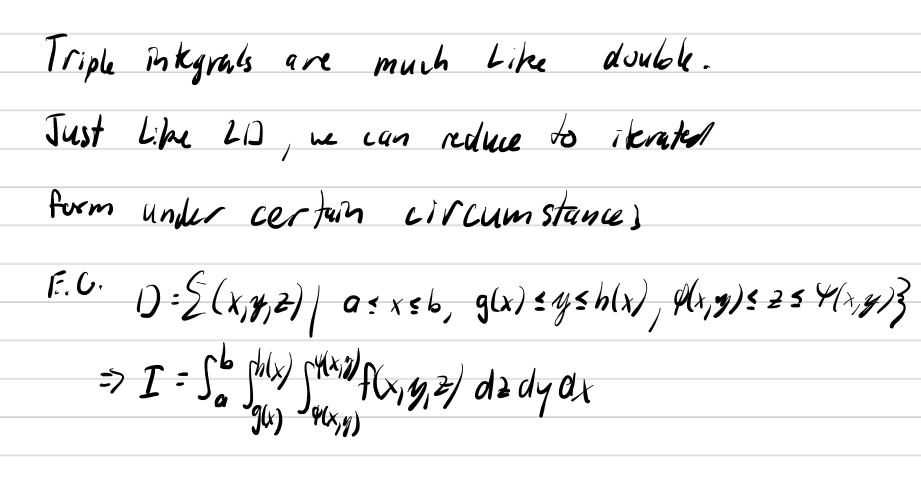 Triple integrals are much like double.
Just like 2D, we can reduce to iterated
form under certain circumstances
E.G. D = {(x,y,z) | a ≤ x ≤ b, g(x) ≤ y ≤ h(x), φ(x,y) ≤ z ≤ ψ(x,y)}
⇒ I = ∫_a^b ∫_{g(x)}^{h(x)} ∫_{φ(x,y)}^{ψ(x,y)} f(x,y,z) dz dy dx